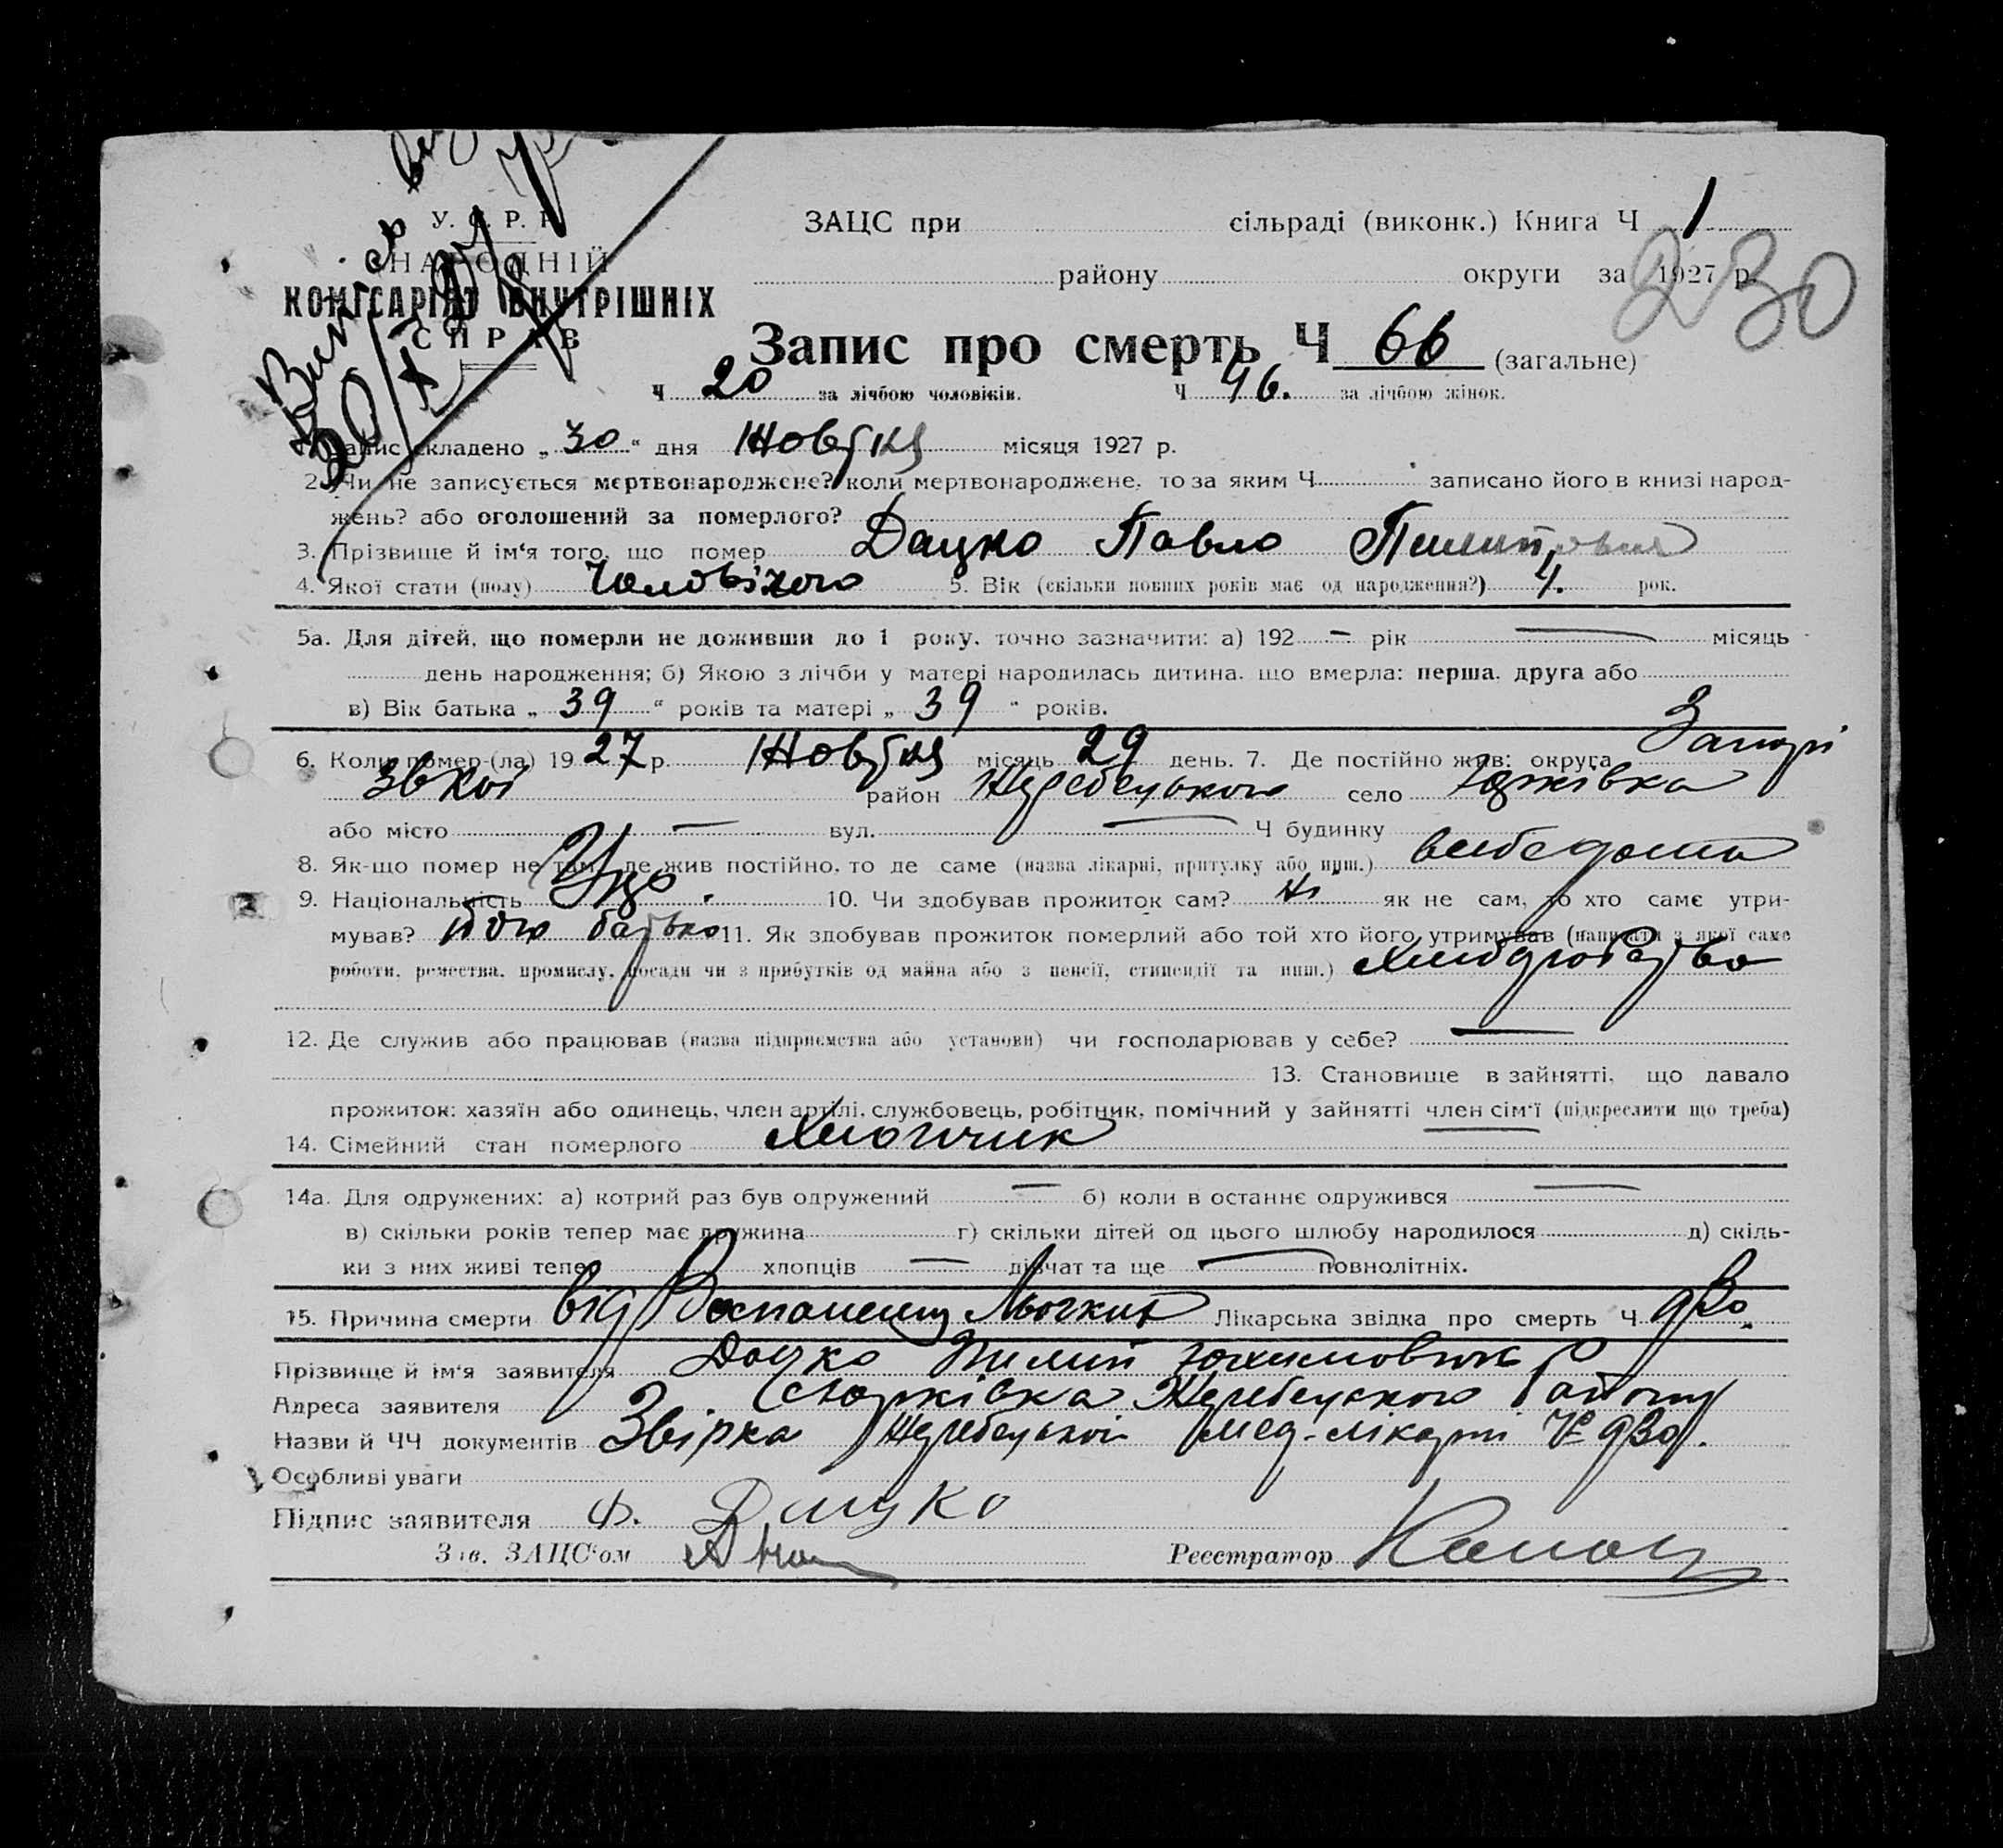 У. С. Р. Р.
НАРОДНІЙ
КОМІСАРІЯТ ВНУТРІШНІХ
СПРАВ
ЗАЦС при сільраді (виконк.) Книга Ч 1
району округи за 1927 р.
230
Запис про смерть Ч 66 (загальне)
Ч 20 за лічбою чоловіків. Ч 46. за лічбою жінок.
Запис складено „30“ дня Жовтня місяця 1927 р.
2. Чи не записується мертвонароджене? коли мертвонароджене, то за яким Ч записано його в книзі народ-
жень? або оголошений за померлого?
3. Прізвище й ім'я того, що помер Дацко Павло Пилипович
4. Якої стати (полу) Чоловічого 5. Вік (скільки повних років має од народження?) 4. рок.
5а. Для дітей, що померли не доживши до 1 року, точно зазначити: а) 192 — рік — місяць
день народження; б) Якою з лічби у матері народилась дитина, що вмерла: перша, друга або
в) Вік батька „39“ років та матері „39“ років.
6. Коли помер-(ла) 1927 р. Жовтня місяць 29 день. 7. Де постійно жив: округа Запорі
звкої район Жеребецького село Юрківка
або місто — вул. — Ч будинку
8. Як-що помер не там, де жив постійно, то де саме (назва лікарні, притулку або инш.)
9. Національність Укр. 10. Чи здобував прожиток сам? ні як не сам, то хто саме утри-
мував? його батько 11. Як здобував прожиток померлий або той хто його утримував (написати з якої саме
роботи, ремества, промислу, посади чи з прибутків од майна або з пенсії, стипендії та инш.) Хліборобство
12. Де служив або працював (назва підприємства або установи) чи господарював у себе? —
13. Становище в зайнятті, що давало
прожиток: хазяїн або одинець, член артілі, службовець, робітник, помічний у зайнятті член сім'ї (підкреслити що треба)
14. Сімейний стан померлого Хлопчик
14а. Для одружених: а) котрий раз був одружений — б) коли в останнє одружився —
в) скільки років тепер має дружина г) скільки дітей од цього шлюбу народилося д) скіль-
ки з них живі тепер хлопців — дівчат та ще — повнолітніх.
15. Причина смерти від Воспалення Льогких Лікарська звідка про смерть Ч 930.
Прізвище й ім'я заявителя Дацко Пилип Юхимович
Адреса заявителя с Юрківка Жеребецького Району
Назви й ЧЧ документів Звірка Жеребецької мед-лікарні № 930.
Особливі уваги
Підпис заявителя Ф. Дацко
Зав. ЗАЦС'ом
Реєстратор